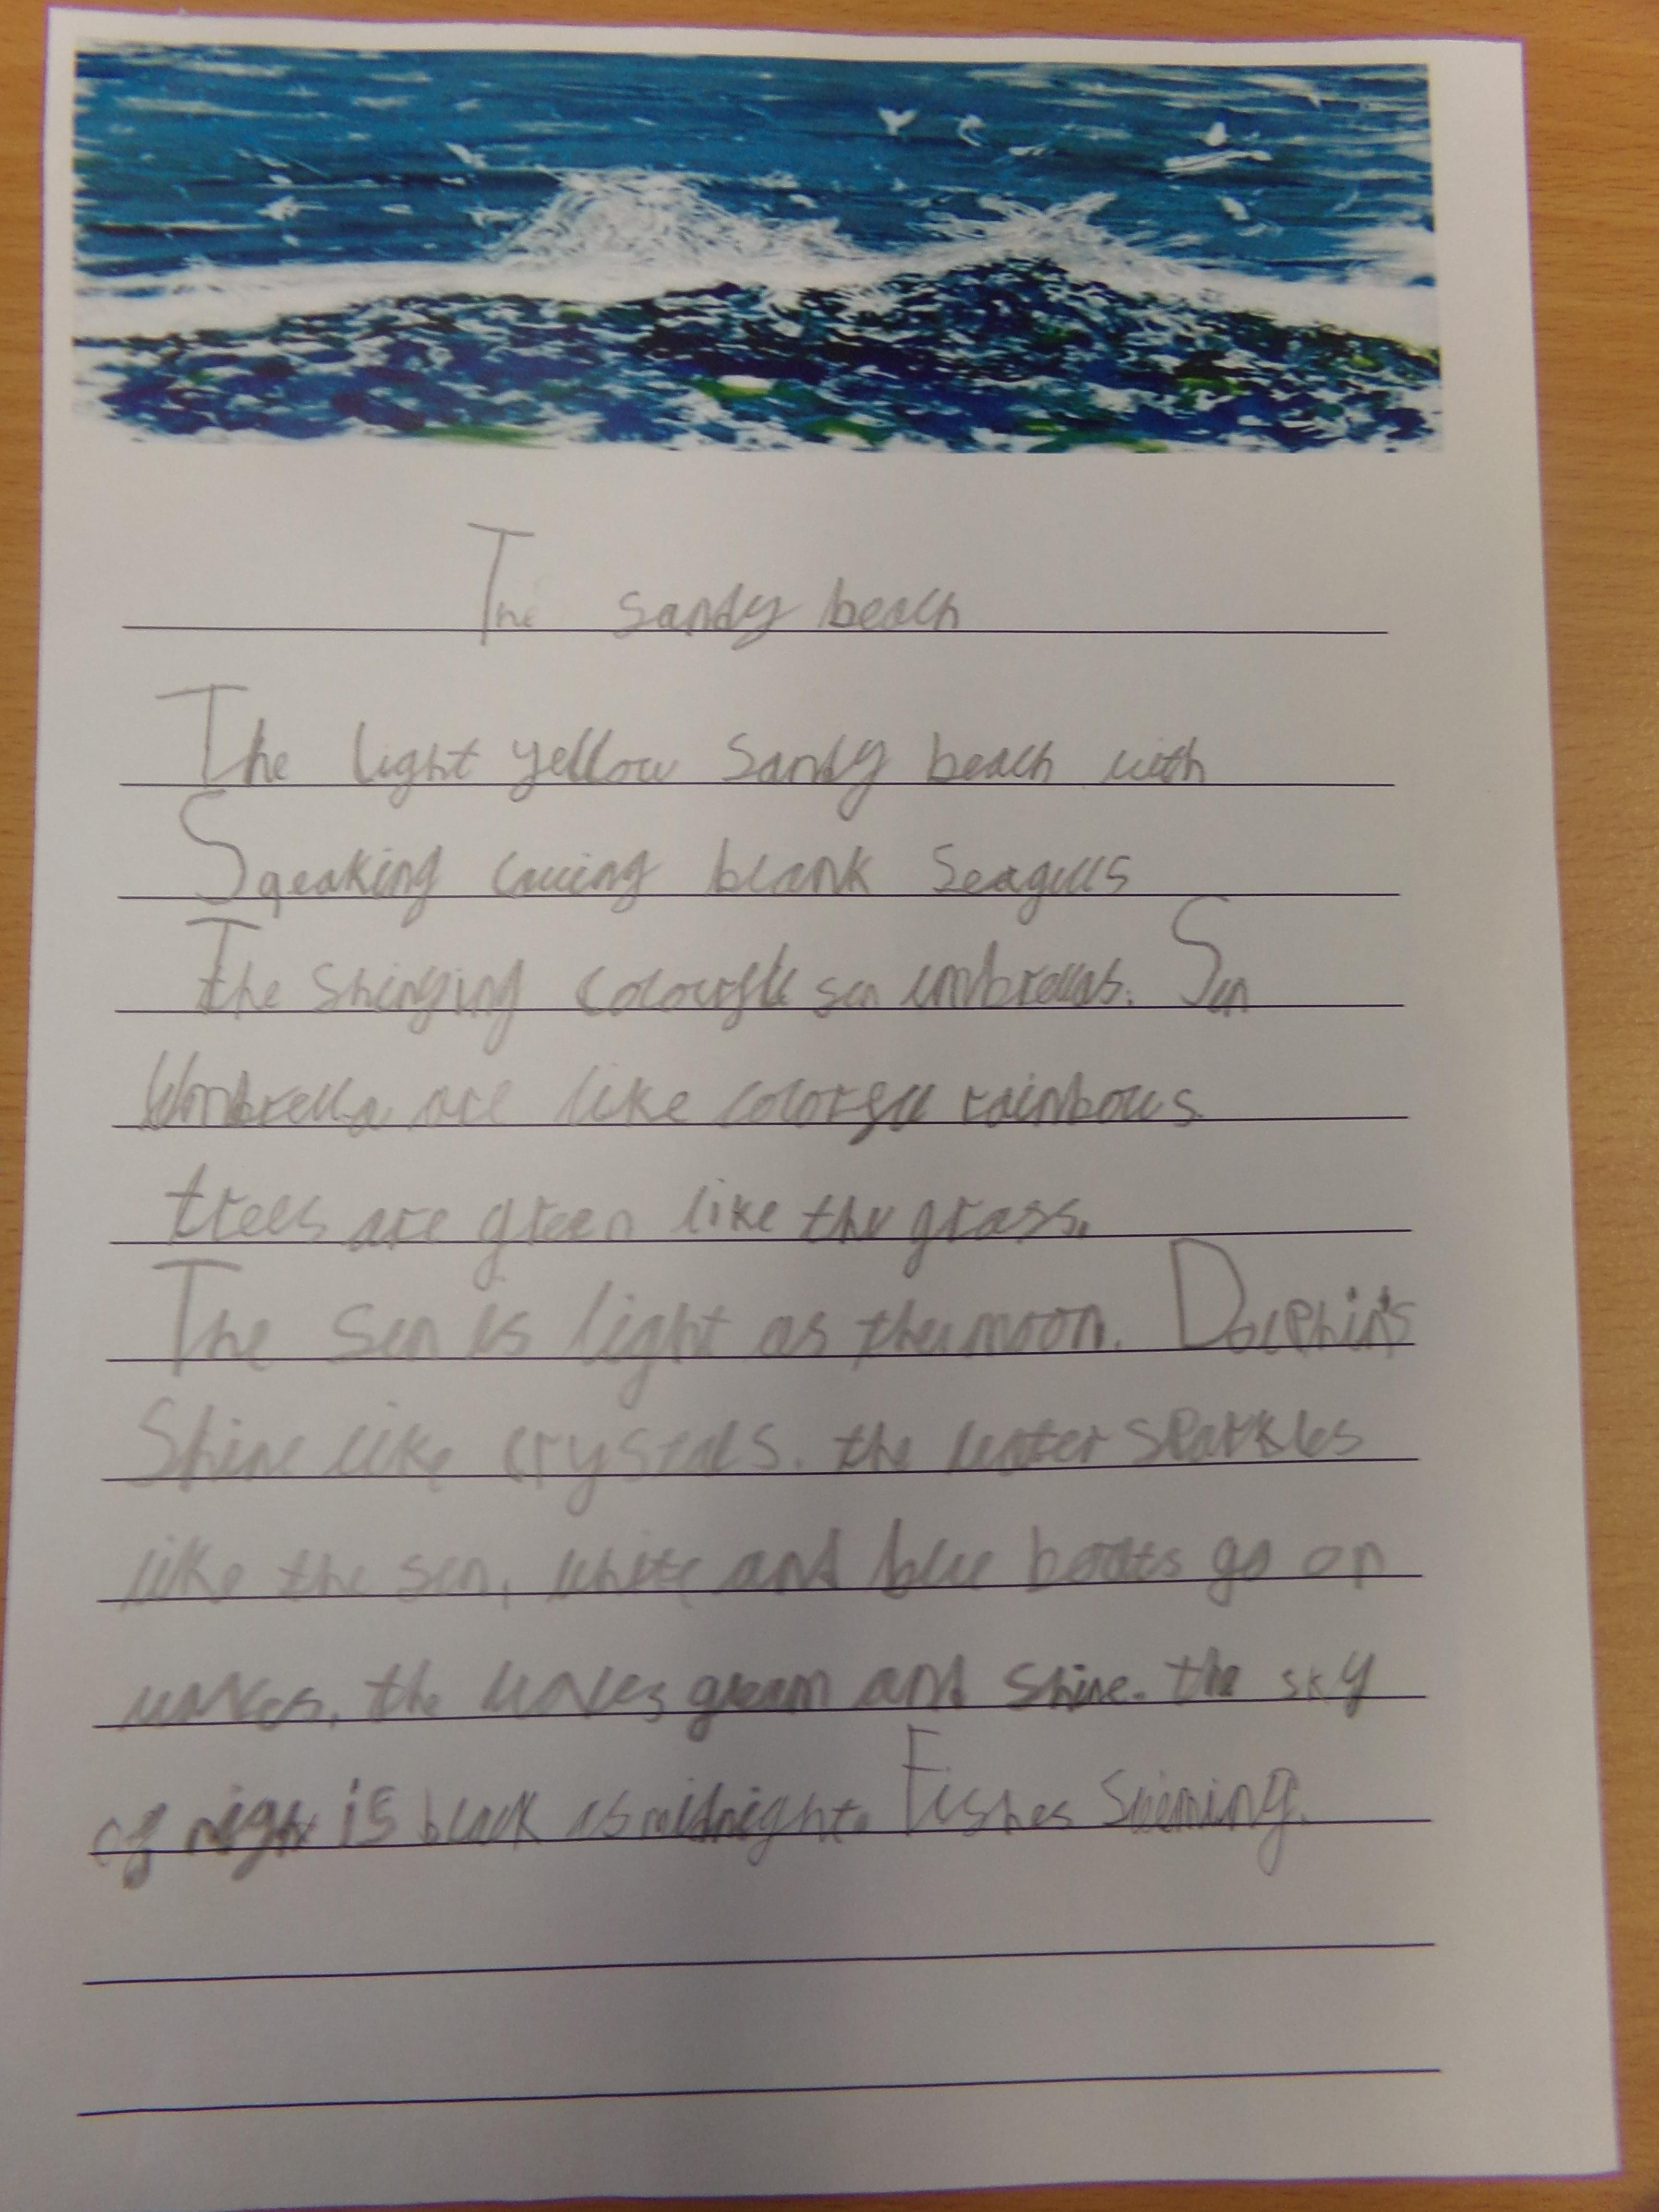 The sandy beach
The light yellow Sandy beach with
Sqeaking cawing blank Seagulls
The shinging colourful sun umbrellas. Sun
Umbrella are like colorful rainbows.
trees are green like the grass.
The Sun is light as the moon. Dolphins
Shine like crystals. the water sparkles
like the sun, white and blue boats go on
waves. the waves gleam and shine. the sky
of night is black as midnight. Fishes Swiming.